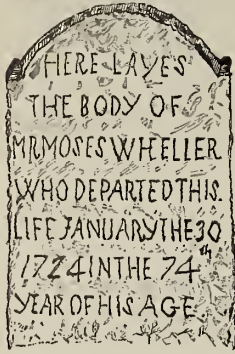 HERE LAYES
THE BODY OF
MR MOSES WHEELLER
WHO DEPARTED THIS.
LIFE JANUARY THE 30
1724 IN THE 74th
YEAR OF HIS AGE